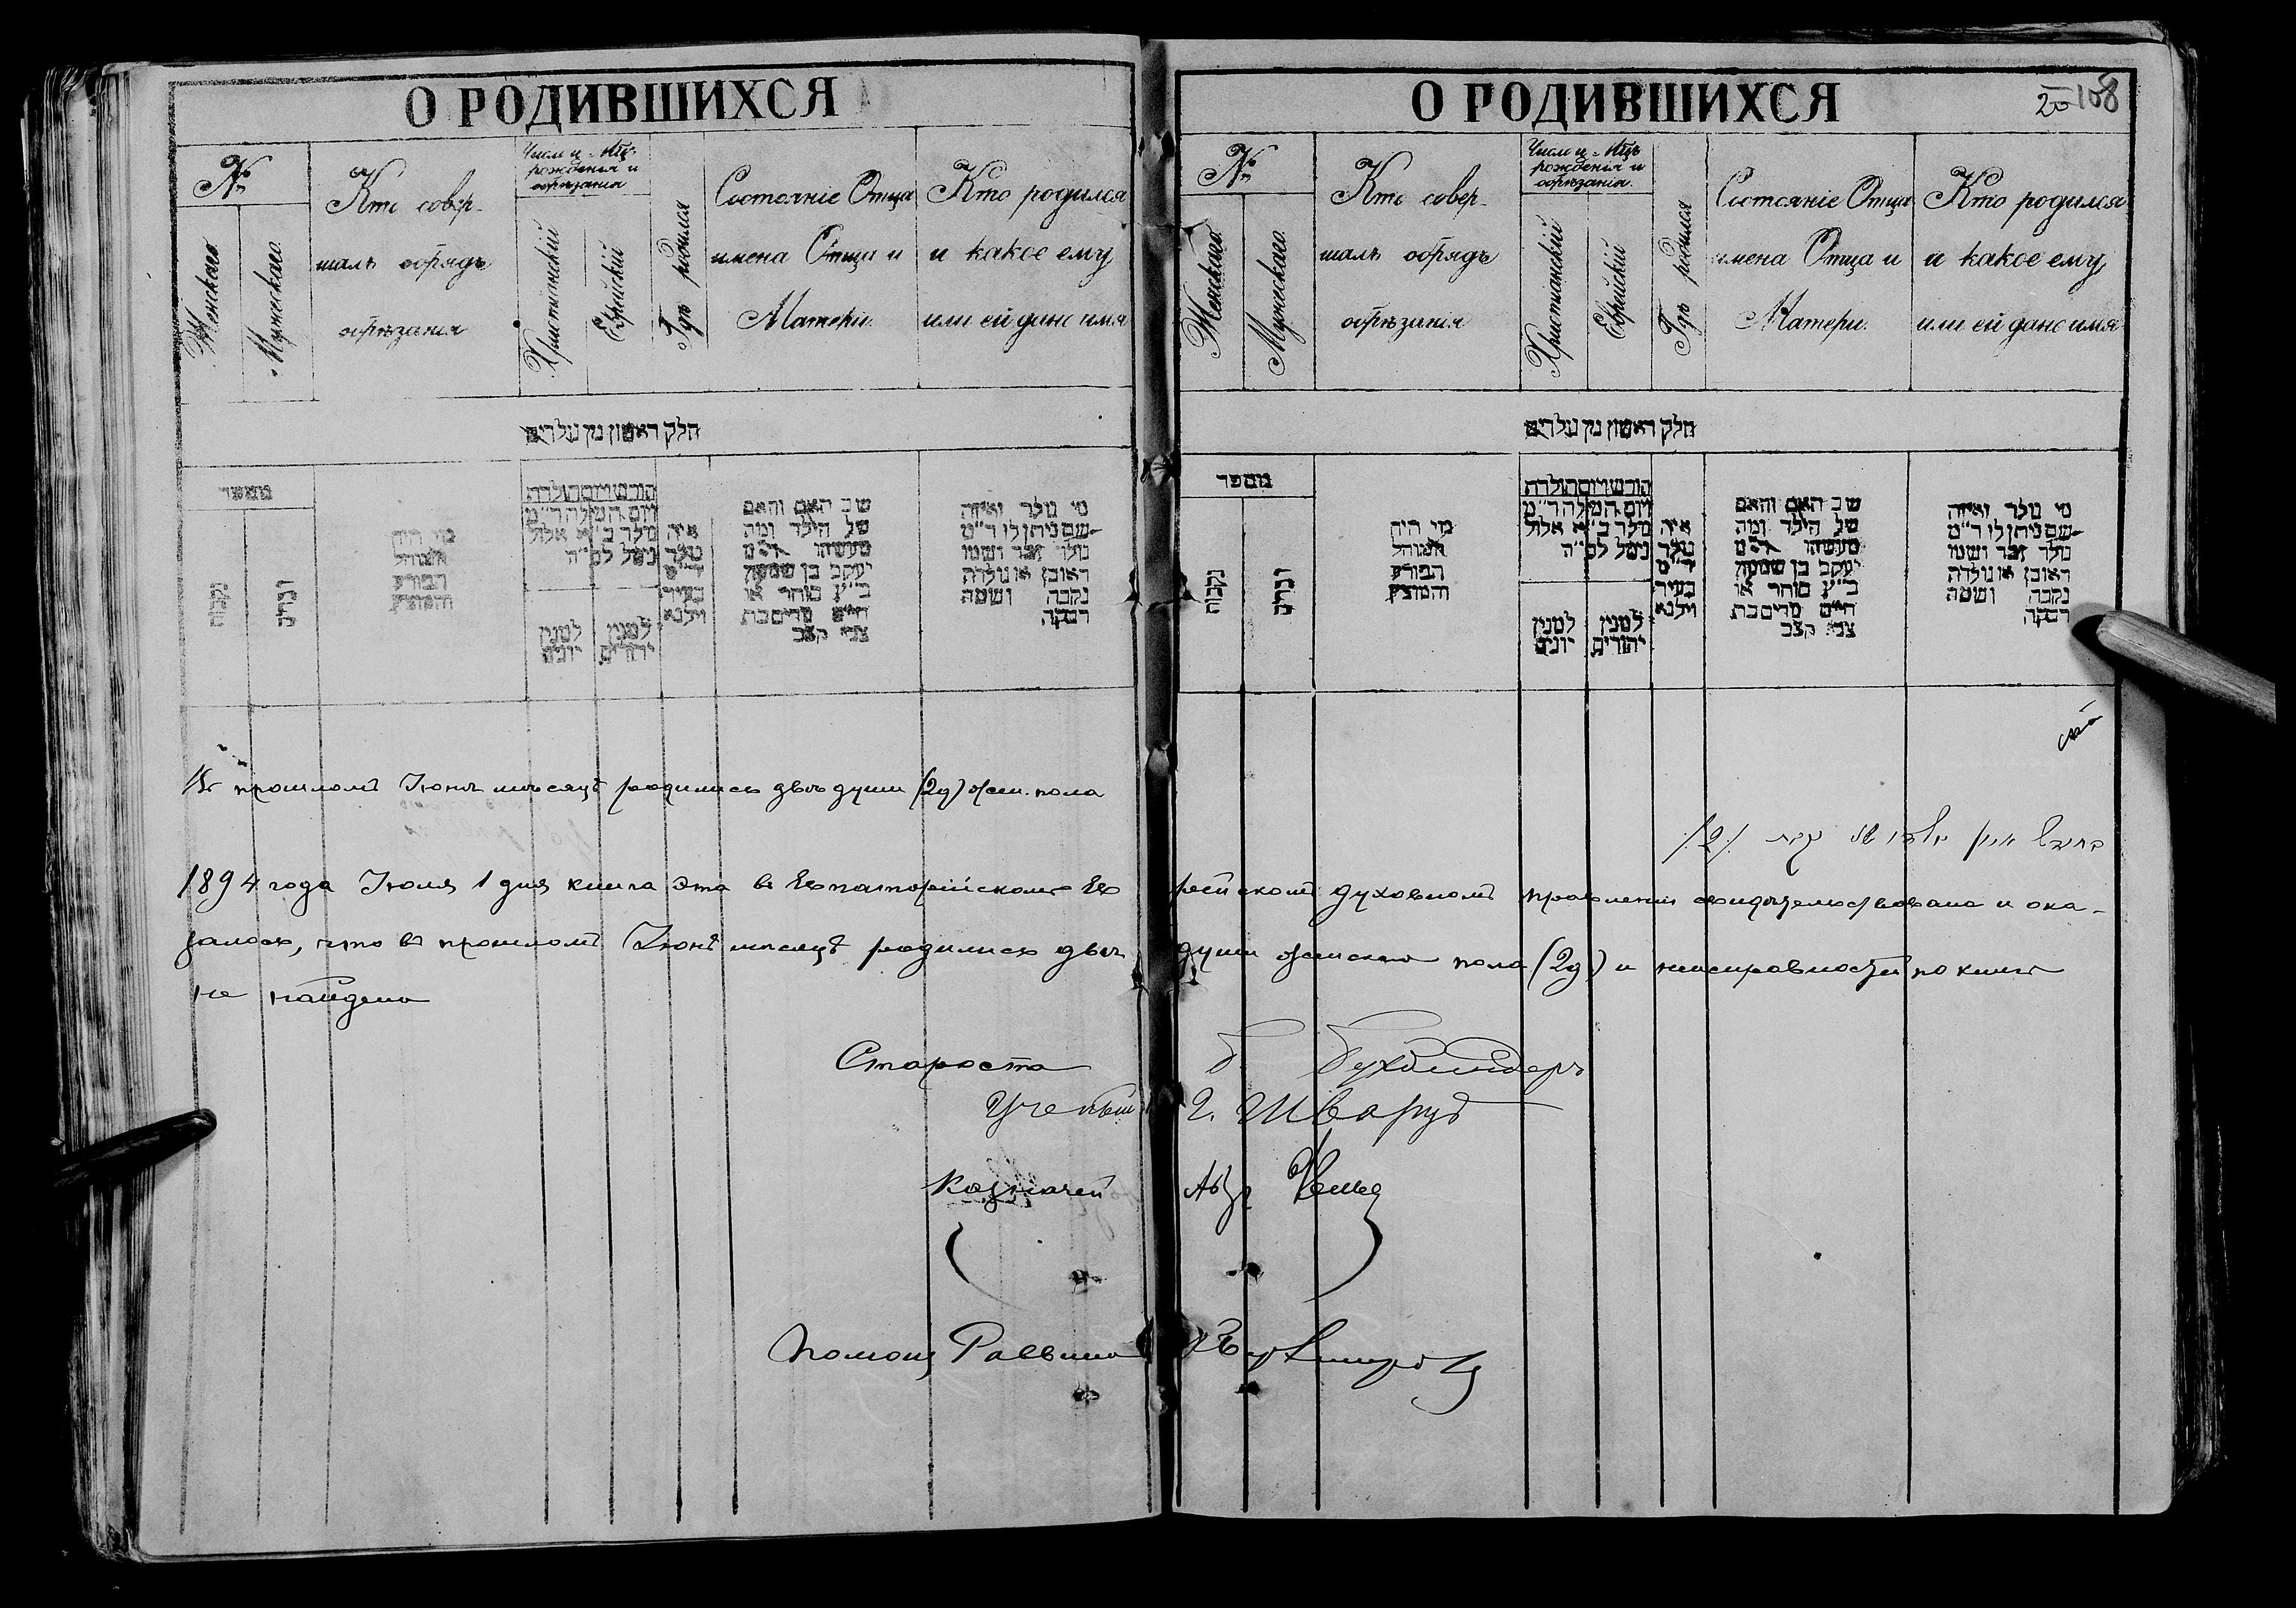 О РОДИВШИХСЯ
№
Женскаго
Мужескаго.
Кто совер-
шалъ обрядъ
обрѣзанія
Число и Мцъ
рожденія и
обрѣзанія
Христіанскій
Еврейскій
Гдѣ родился
Состояніе Отца
имена Отца и
Матери.
Кто родился
и какое ему
или ей дано имя
חלק ראשון מן נולדים
מספר
נקבות
זכרים
מי היה
המוהל
הפורע
והמוצץ
חודש ויום תולדת
ויום המילה ד״מ
נולד ב׳ א אלול
נימל לפ״ה
למנין
יונים
למנין
יהודים
איה
נולד
ד״מ
בעיר
וילנא
שם האב והאם
של הילד ומה
מעשהו ד״מ
יעקב בן שמעון
כ״ץ סוחר או
חייט מרים בת
צבי קצב
מי נולד ואיזה
שם ניתן לו ד״מ
נולד זכר ושמו
ראובן או נולדה
נקבה ושמה
רבקה
Въ прошломъ Іюнѣ мѣсяцѣ родились двѣ души (2д) жен. пола
1894 года Іюля 1 дня книга эта въ Евпаторійскомъ Ев
залось, что въ прошломъ Іюнѣ мѣсяцѣ родились двѣ
не найдено
Староста
Ученый
Казначей
Помощ Раввина
О РОДИВШИХСЯ
20 108
№
Женскаго.
Мужескаго.
Кто совер-
шалъ обрядъ
обрѣзанія
Число и Мцъ
рожденія и
обрѣзанія.
Христіанскій
Еврейскій
Гдѣ родился
Состояніе Отца
имена Отца и
Матери.
Кто родился
и какое ему
или ей дано имя
חלק ראשון מן נולדים
מספר
נקבות
זכרים
מי היה
המוהל
הפורע
והמוצץ
חודש ויום תולדת
ויום המילה ד״מ
נולד ב׳ א אלול
נימל לפ״ה
למנין
יונים
למנין
יהודים
איה
נולד
ד״מ
בעיר
וילנא
שם האב והאם
של הילד ומה
מעשהו ד״מ
יעקב בן שמעון
כ״ץ סוחר או
חייט מרים בת
צבי קצב
מי נולד ואיזה
שם ניתן לו ד״מ
נולד זכר ושמו
ראובן או נולדה
נקבה ושמה
רבקה
/.2./
рейскомъ духовномъ правленіи свидѣтельствована и ока-
души женскаго пола (2д) и неисправностей по книгѣ
Б. Бухбиндеръ
І. Шварцъ